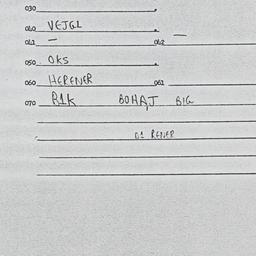 030
040 VEJGL
041 — 042 —
050 OKS
060 HERENER 061
070 R1K BOHAT BIG
01 RENER